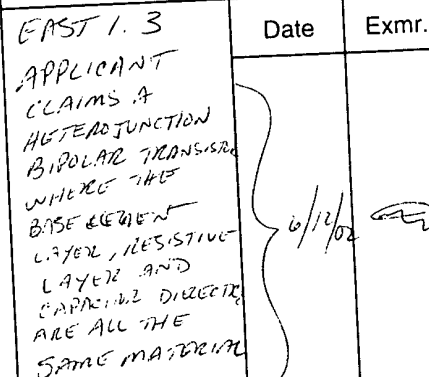 Date Exmr.
EAST 1.3
APPLICANT
CLAIMS A
HETEROJUNCTION
BIPOLAR TRANSISTR
WHERE THE
BASE
LAYER, RESISTIVE
LAYER AND
DIELECTR
ARE ALL THE
SAME MATERIAL
6/12/02